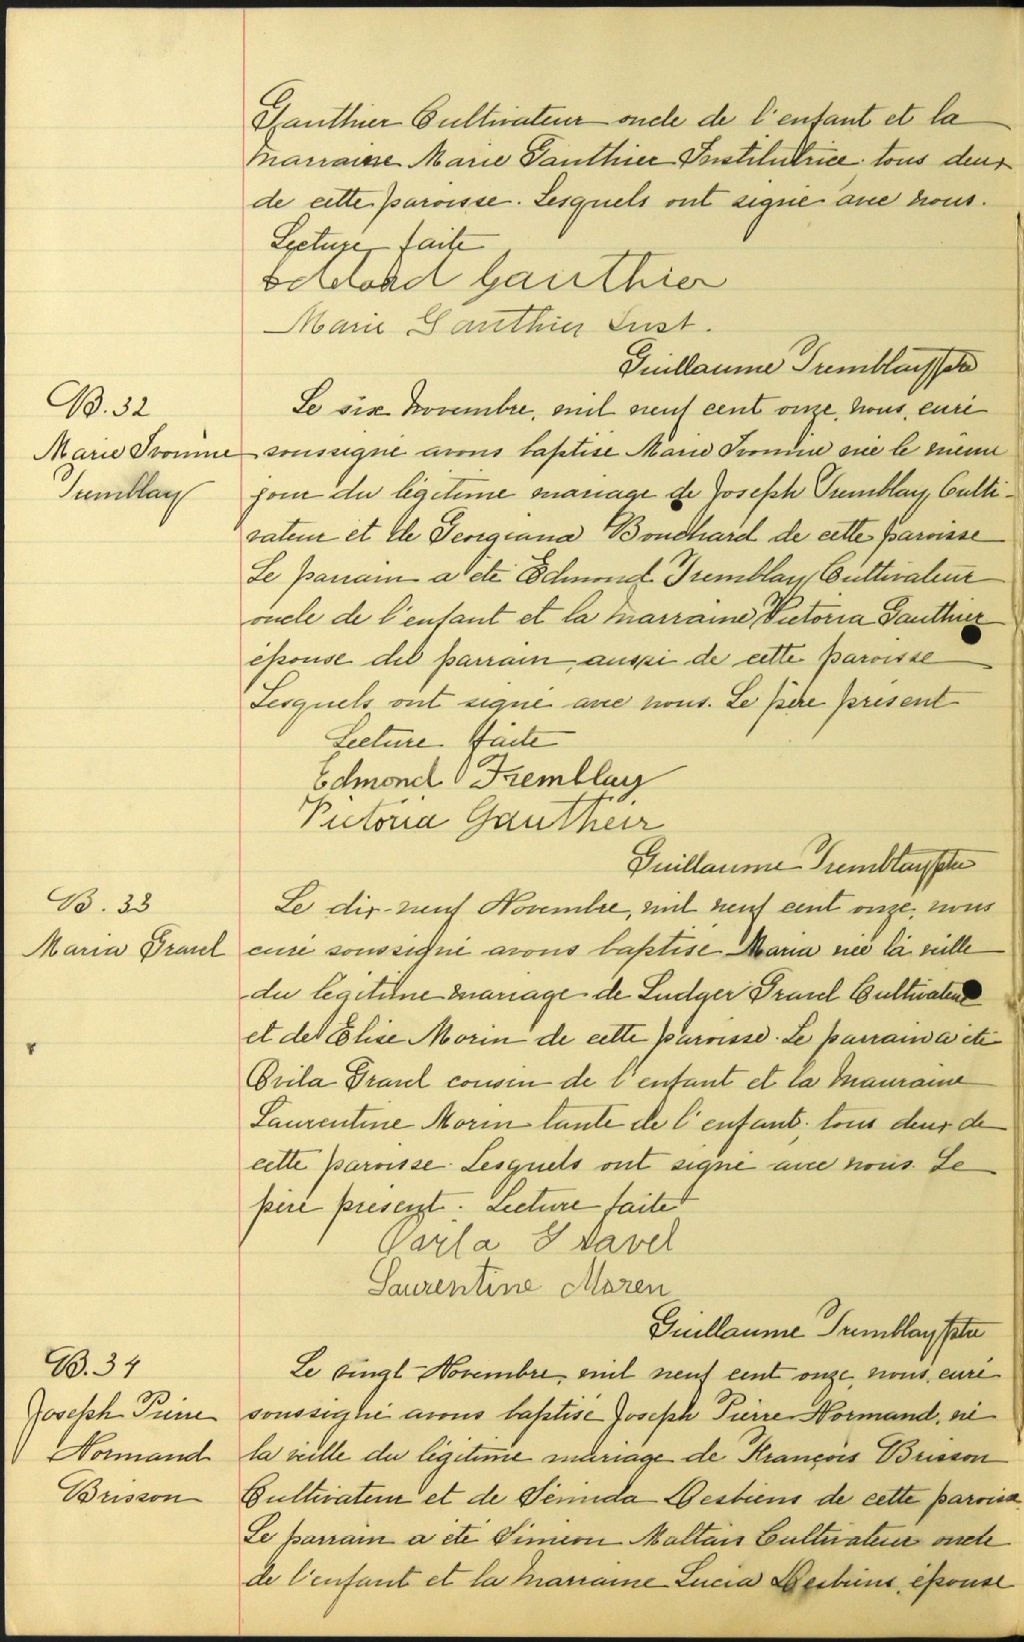 Gauthier Cultivateur oncle de l'enfant et la
marraine Marie Gauthier Institutrice. tous deux
de cette paroisse. Lesquels ont signé avec nous.
Lecture faite
Gauthier
Marie Gauthier Inst.
Guillaume Tremblay ptre
B. 32
Marie Ivonne
Tremblay
Le six Novembre, mil neuf cent onze, nous, curé
soussigné avons baptisé Marie Ivonne née le même
jour du légitime mariage de Joseph Tremblay, Culti-
vateur et de Georgiana Bouchard de cette paroisse
Le parrain a été Edmond Tremblay Cultivateur
oncle de l'enfant et la marraine Victoria Gauthier
épouse du parrain, aussi de cette paroisse
Lesquels ont signé avec nous. Le père présent
Lecture faite
Edmond Tremblay
Victória Gautheir
Guillaume Tremblay ptre
B. 33
Maria Gravel
Le dix-neuf Novembre, mil neuf cent onze, nous
curé soussigné avons baptisé Maria née la veille
du légitime mariage de Ludger Gravel Cultivateur
et de Elise Morin de cette paroisse. Le parrain a été
Ovila Gravel cousin de l'enfant et la marraine
Laurentine Morin tante de l'enfant, tous deux de
cette paroisse. Lesquels ont signé avec nous. Le
père présent. Lecture faite
Gravel
Laurentine Moren
Guillaume Tremblay ptre
B. 34
Joseph Pierre
Normand
Brisson
Le vingt Novembre, mil neuf cent onze, nous, curé
soussigné avons baptisé Joseph Pierre Normand, né
la veille du légitime mariage de François Brisson
Cultivateur et de Desbiens de cette paroisse.
Le parrain a été Siméon Maltais Cultivateur oncle
de l'enfant et la marraine Lucia Desbiens, épouse